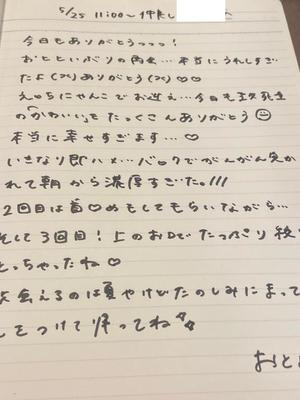 5/25 11:00〜 仲よし
今日もありがとうっっっ!
おとといぶりの再会…本当にうれしすぎ
たよ(泣)ありがとう(泣)♡♡
えっちにゃんこでお迎え…今日も
の「かわいい」をたっくさんありがとう☺
本当に幸せすぎます…♡
いきなり即ハメ…バックでがんがん突か
れて朝から濃厚すぎた。!!!
2回目は首♡めもしてもらいながら…
そして3回目!上のお口でたっぷり
とっちゃったね♡
会えるのは夏やけどたのしみにまって
をつけて帰ってね